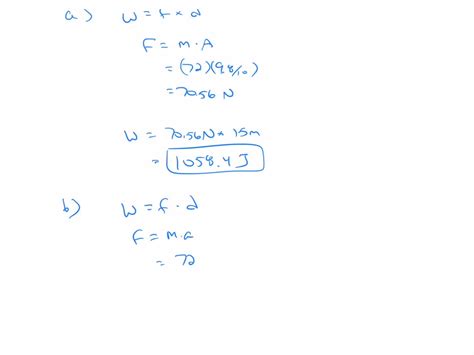 a) W = f × d
F = m · A
= (72)(9.8/10)
= 70.56 N
W = 70.56N × 15m
= 1058.4 J
b) W = f · d
F = m·a
= 72